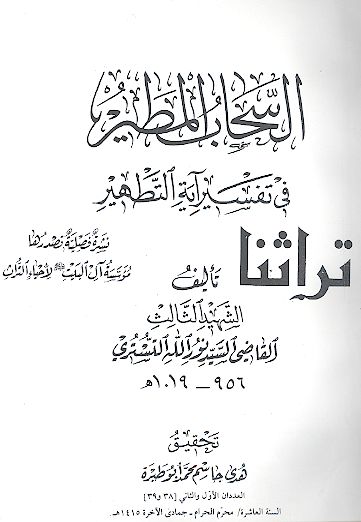 السَّحَابُ المَطِيرُ
فِي تَفْسِيرِ آيَةِ التَّطْهِيرِ
نشرة فصلية تصدرها
مؤسسة آل البيت لإحياء التراث
تراثنا
تأليف
الشهيد الثالث
القاضي السيد نور الله التستري
٩٥٦ - ١٠١٩هـ
تحقيق
هدى جاسم محمد أبو طبرة
العددان الأول والثاني [٣٨ و ٣٩]
السنة العاشرة / محرم الحرام - جمادى الآخرة ١٤١٥هـ